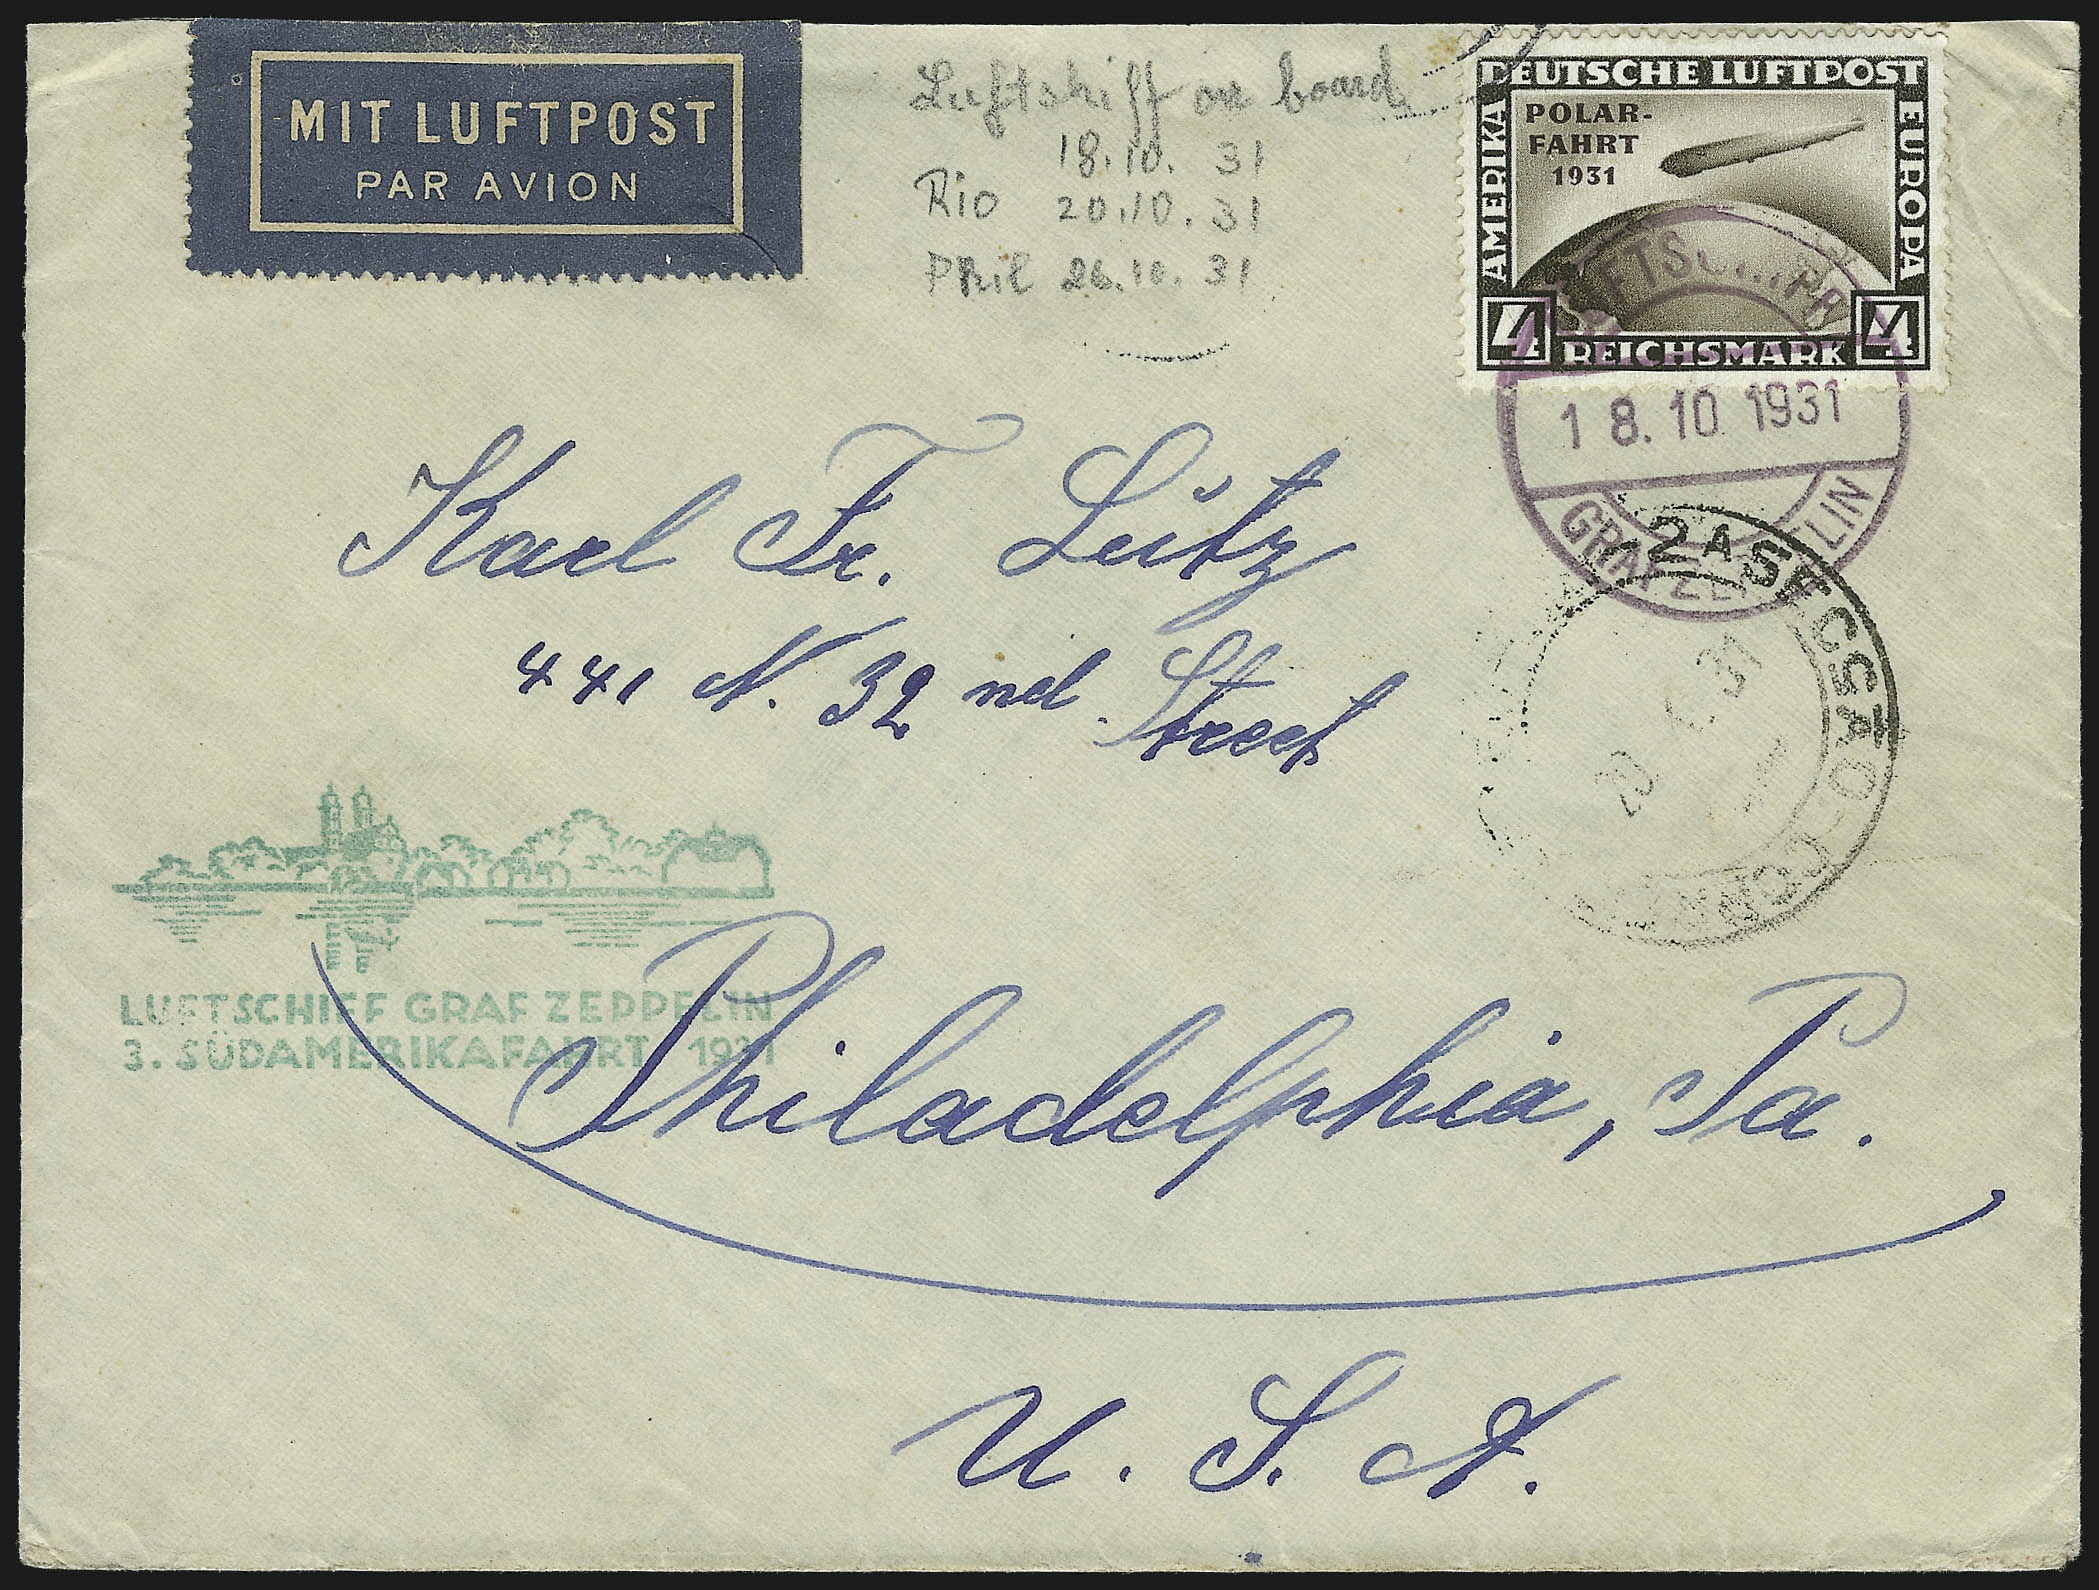 MIT LUFTPOST
PAR AVION
Luftshiff on board
18.10.31
Rio 20.10.31
Phil 26.10.31
DEUTSCHE LUFTPOST
AMERIKA
EUROPA
POLAR-
FAHRT
1931
4 REICHSMARK 4
18.10 1931
GRAF ZEPPELIN
2A SECSÃO
20 31
Karl Fr. Lutz
441 N. 32 nd. Street
Philadelphia, Pa.
U. S. A.
LUFTSCHIFF GRAF ZEPPELIN
3. SÜDAMERIKAFAHRT 1931